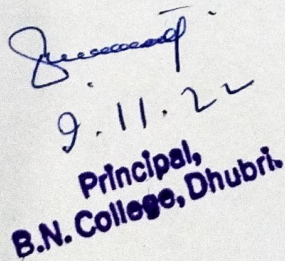 9.11.22
Principal,
B.N. College, Dhubri.